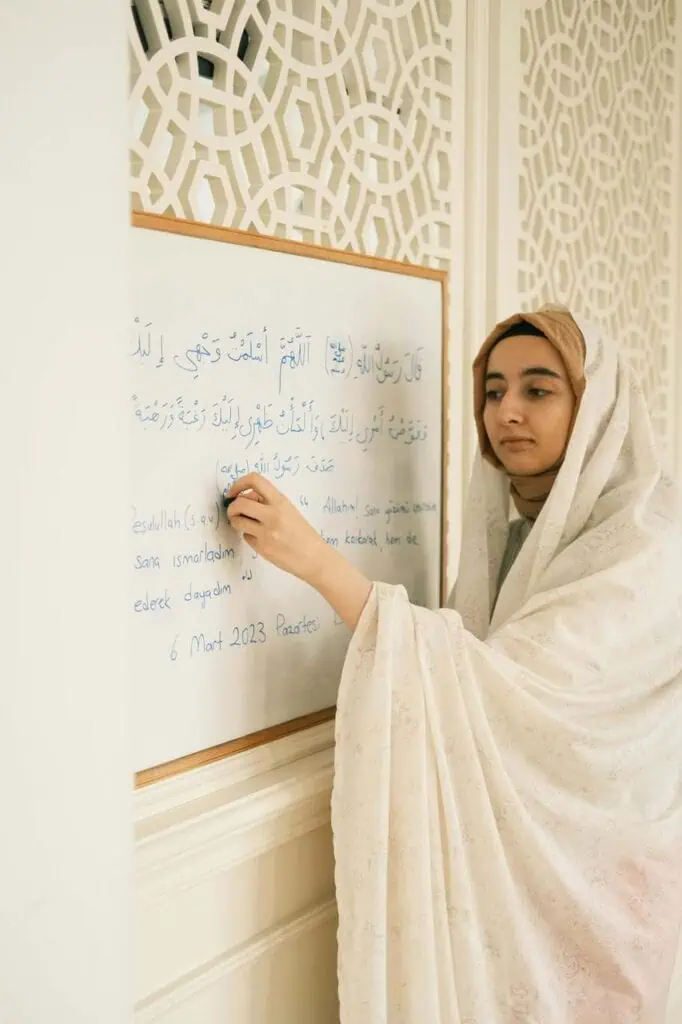 قَالَ رَسُولُ اللّٰهِ (ﷺ) اَللّٰهُمَّ أَسْلَمْتُ وَجْهِي إِلَيْكَ
وَفَوَّضْتُ أَمْرِي إِلَيْكَ، وَأَلْجَأْتُ ظَهْرِي إِلَيْكَ رَغْبَةً وَرَهْبَةً
صَدَقَ رَسُولُ اللّٰه (ﷺ)
esulullah (s.a.v) " Allahım! sana yüzümü
sana ismarladım hem korkarak, hem de
ederek dayadım "
6 Mart 2023 Pazartesi